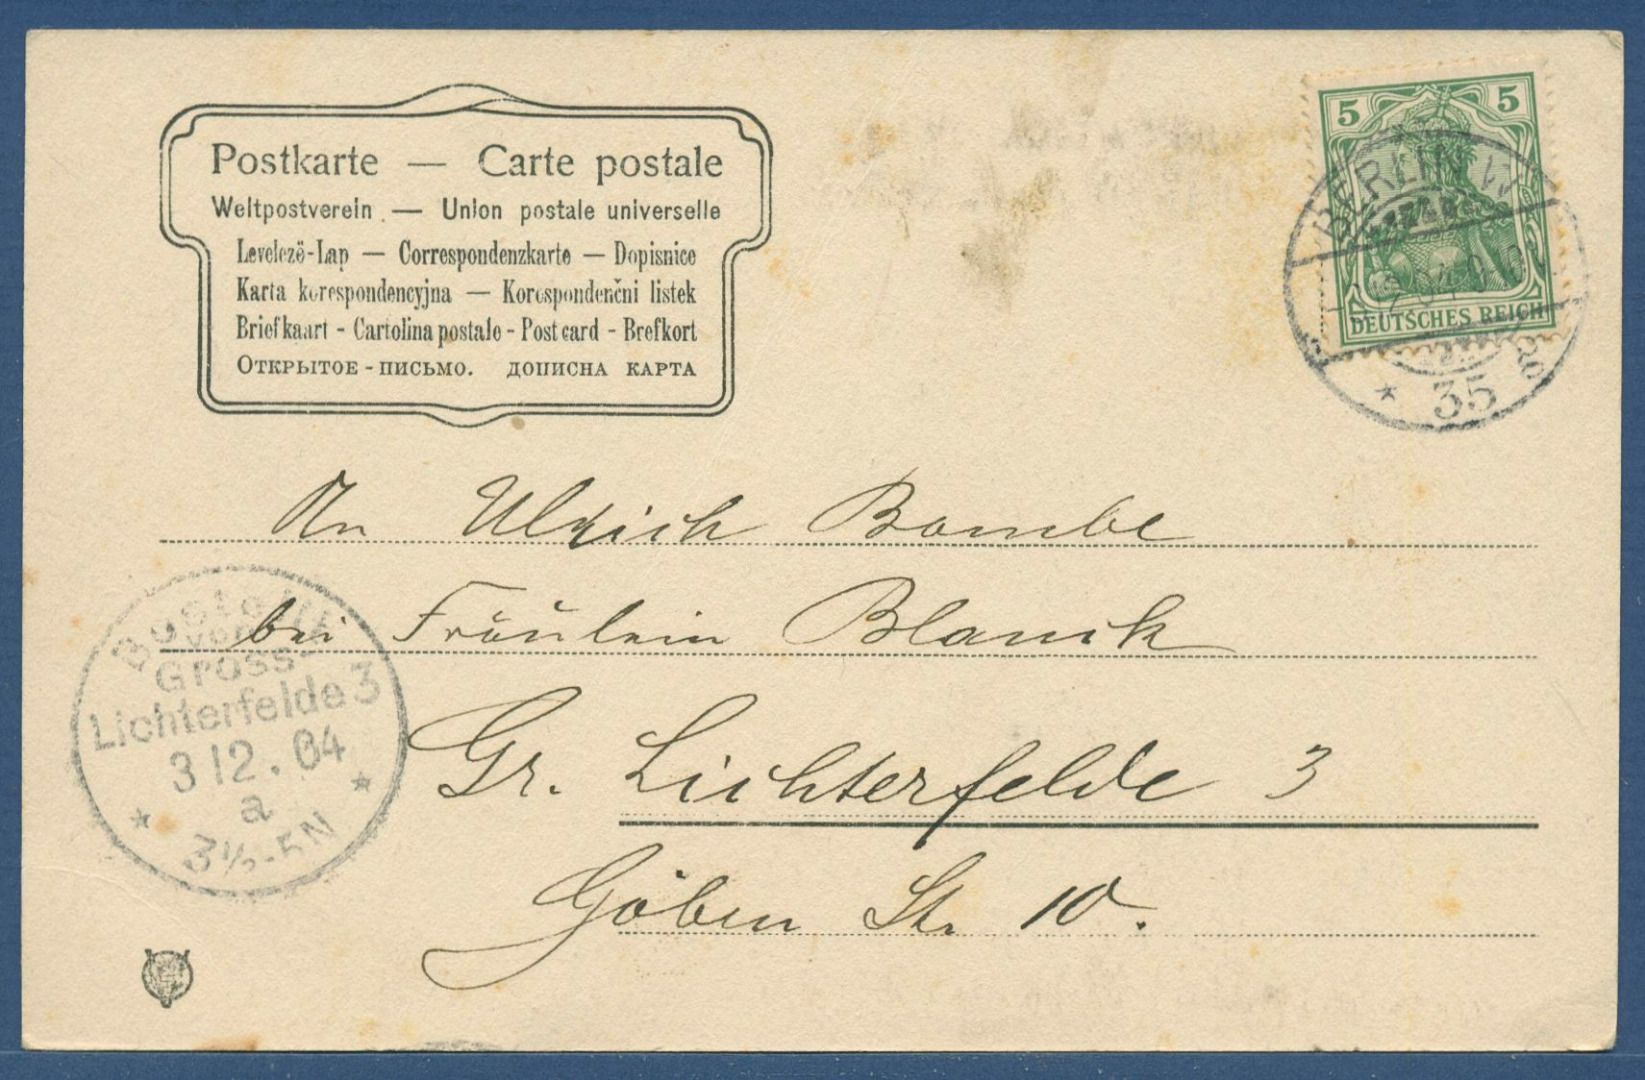 Postkarte — Carte postale
Weltpostverein. — Union postale universelle
Levelezö-Lap — Correspondenzkarte — Dopisnice
Karta korespondencyjna — Korespondenčni listek
Briefkaart - Cartolina postale - Post card - Brefkort
Открытое-письмо. дописна карта
5 5
DEUTSCHES REICH
BERLIN W
* 35
An Ulrich Bombe
bei Fräulein Blanck
Gr. Lichterfelde 3
Göben St. 10.
Bestellt
vom
Gross-
Lichterfelde 3
3 12.04
a
* 3½-5N *